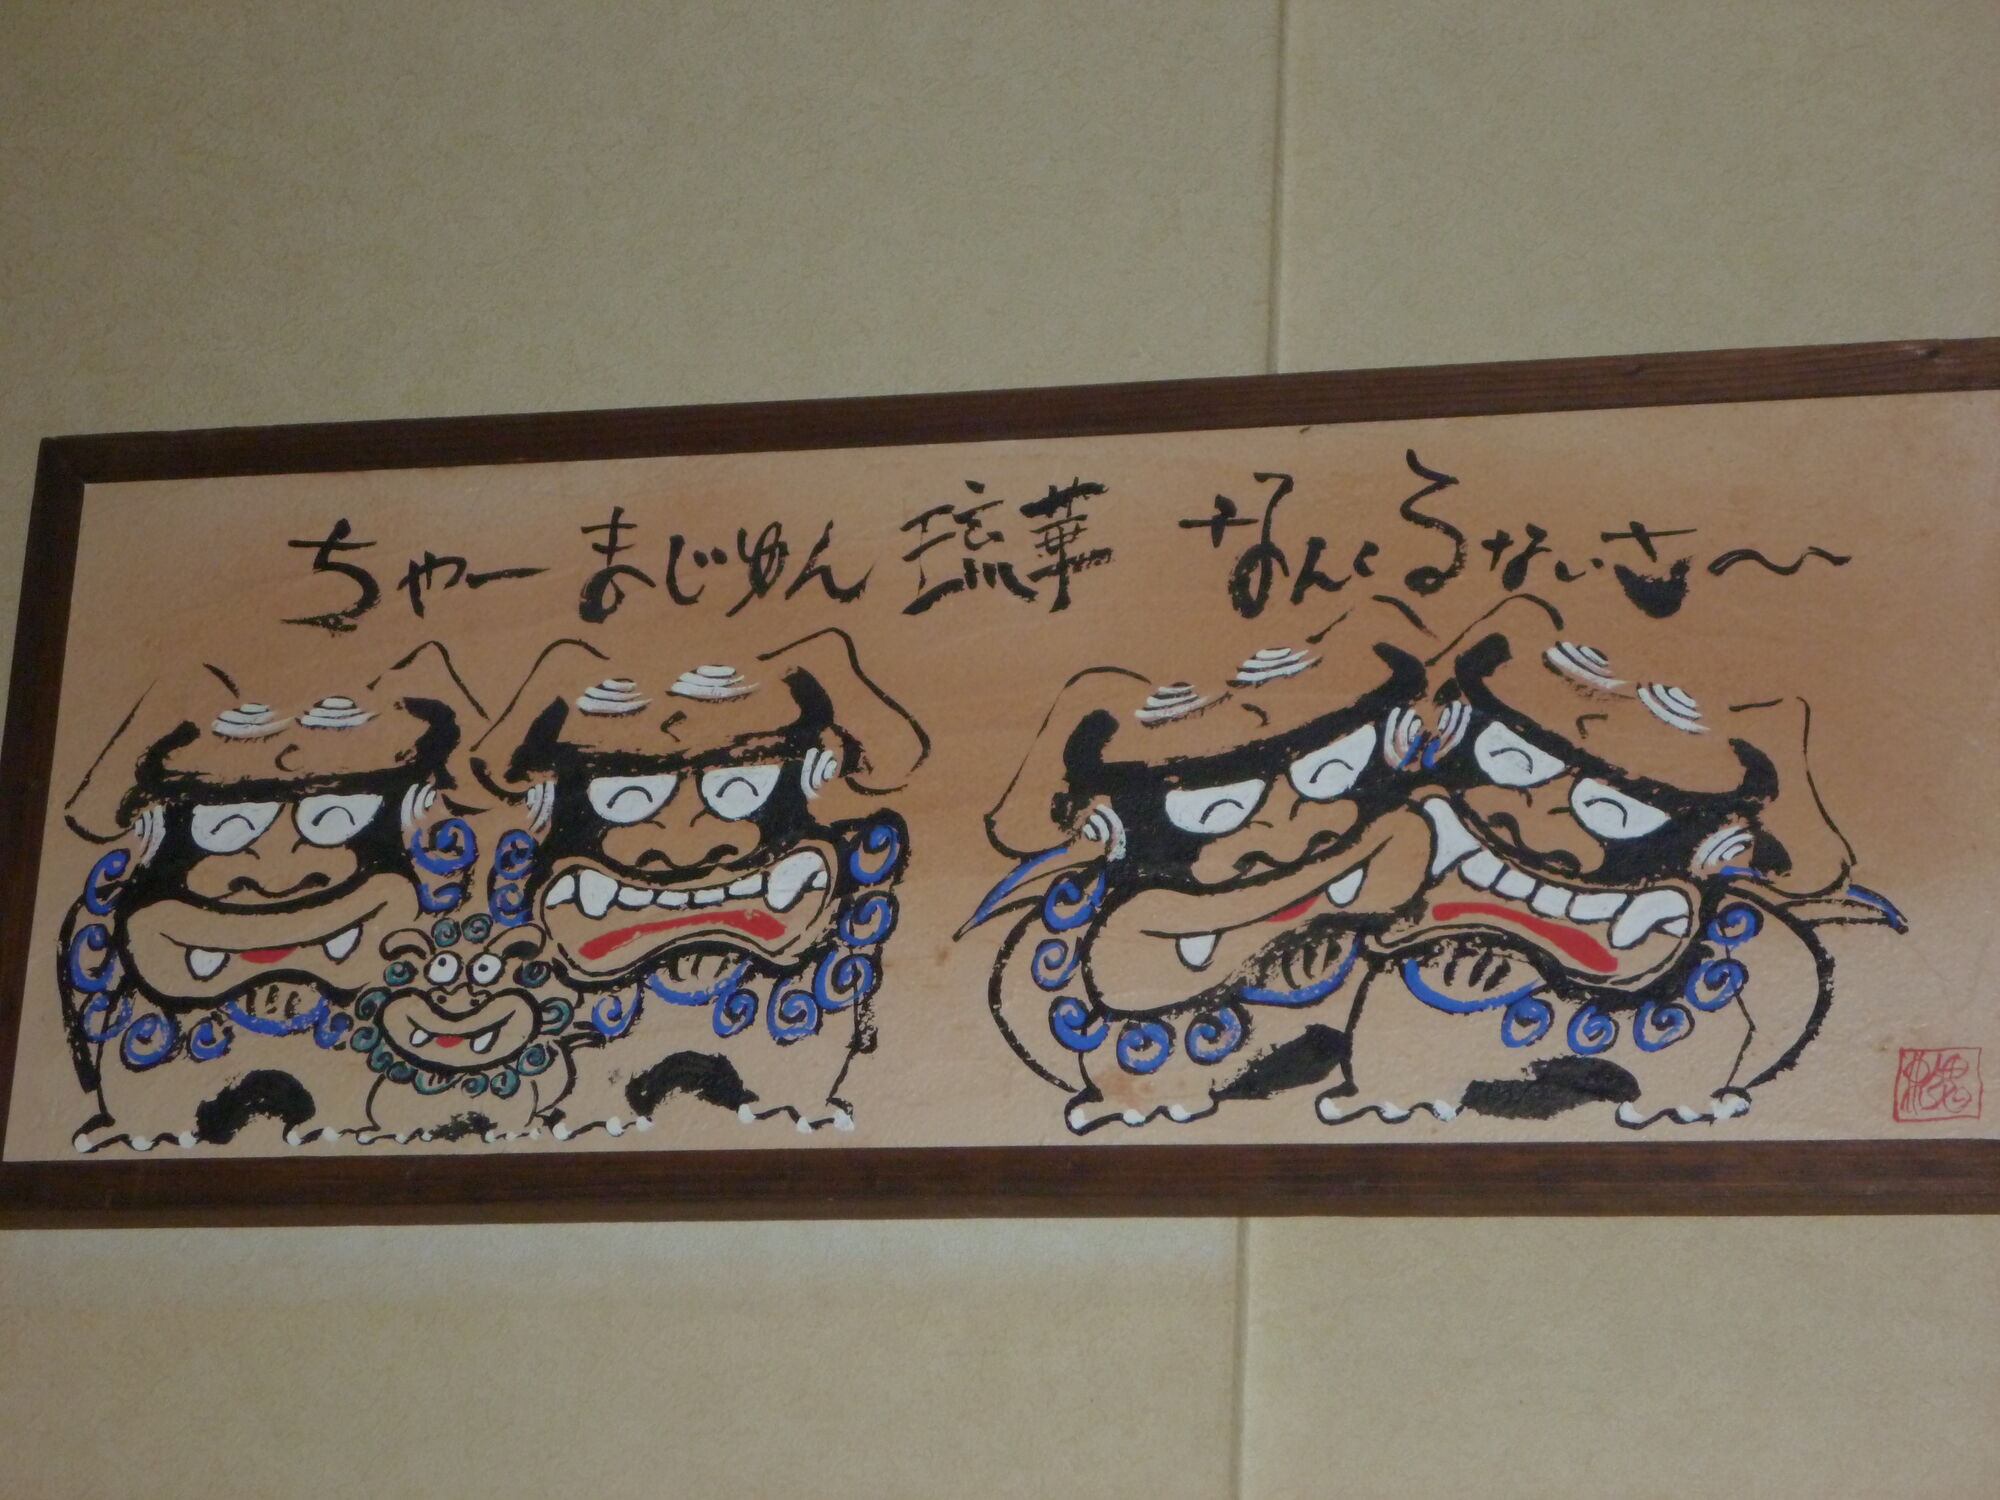 ちゃーまじゅん 琉華 なんくるないさ～